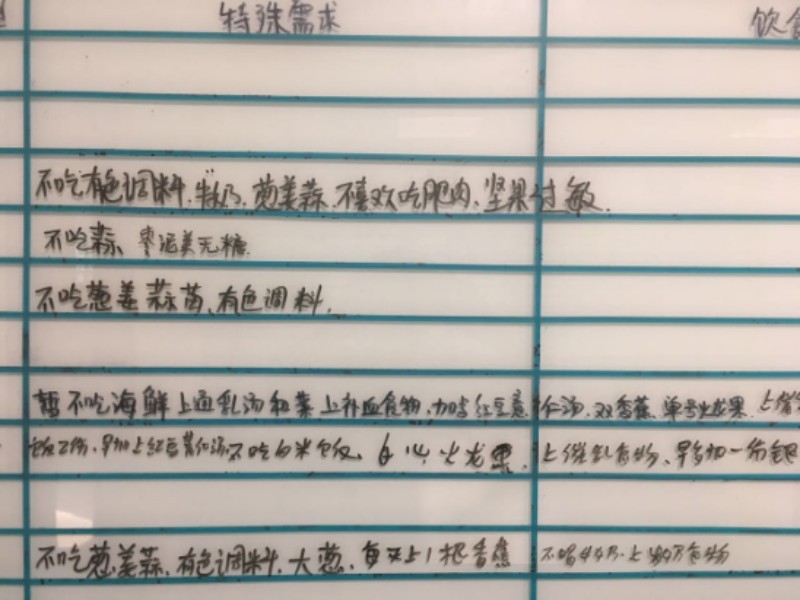 特殊需求 饮食
不吃有色调料、牛奶、葱姜蒜、不喜欢吃肥肉、坚果过敏
不吃蒜、枣泥羹无糖
不吃葱姜蒜苗、有色调料、
暂不吃海鲜上通乳汤和菜上补血食物、加 红豆薏仁汤、双香蕉、单号火龙果、上催
早加上红豆薏仁汤、不吃白米饭、白心火龙果、上催乳食物、早多加一份
不吃葱姜蒜、有色调料、大葱、每天上1把香蕉 不喝牛奶、上 食物